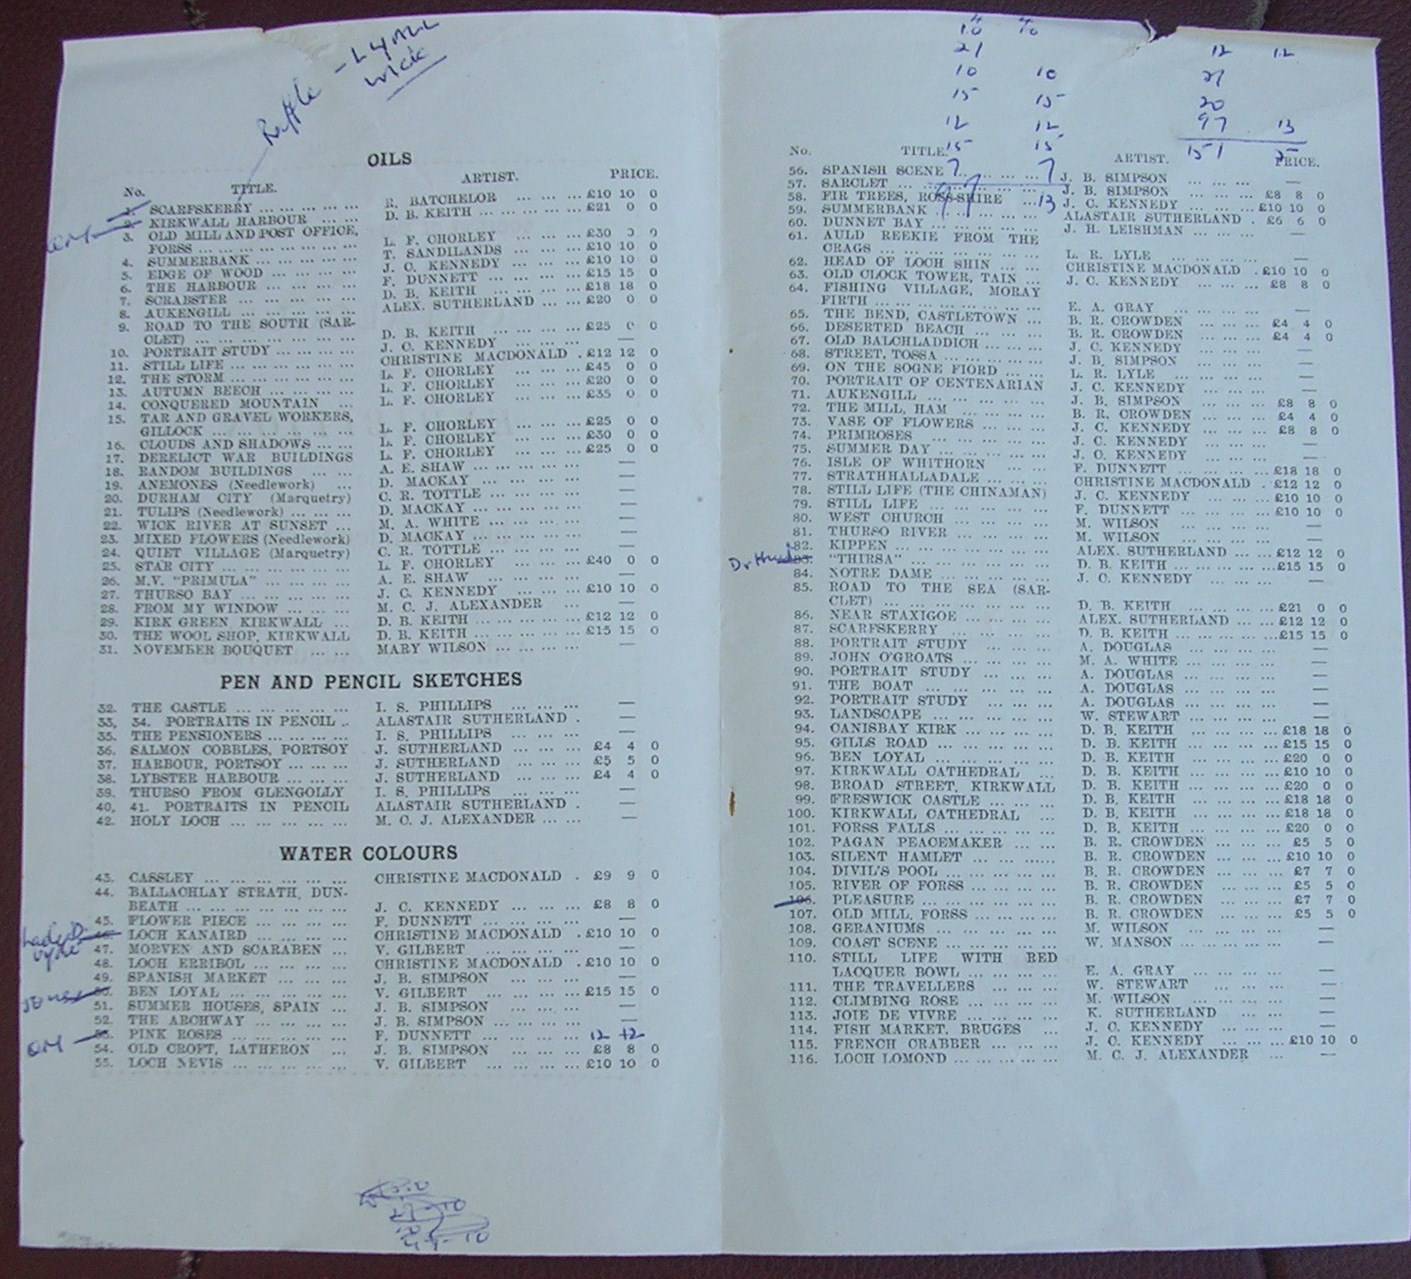 Raffle - LYALL
Wick
OILS
No. TITLE. ARTIST. PRICE.
1. SCARFSKERRY ... ... ... ... ... R. BATCHELOR ... ... ... £10 10 0
2. KIRKWALL HARBOUR ... ... D. B. KEITH ... ... ... ... £21 0 0
3. OLD MILL AND POST OFFICE,
FORSS ... ... ... ... ... ... L. F. CHORLEY ... ... ... £30 0 0
4. SUMMERBANK ... ... ... ... T. SANDILANDS ... ... ... £10 10 0
5. EDGE OF WOOD ... ... ... ... J. C. KENNEDY ... ... ... £10 10 0
6. THE HARBOUR ... ... ... ... F. DUNNETT ... ... ... ... £15 15 0
7. SCRABSTER ... ... ... ... ... D. B. KEITH ... ... ... ... £18 18 0
8. AUKENGILL ... ... ... ... ... ALEX. SUTHERLAND ... ... £20 0 0
9. ROAD TO THE SOUTH (SAR-
CLET) ... ... ... ... ... ... D. B. KEITH ... ... ... ... £25 0 0
10. PORTRAIT STUDY ... ... ... ... J. C. KENNEDY ... ... ... —
11. STILL LIFE ... ... ... ... ... CHRISTINE MACDONALD . £12 12 0
12. THE STORM ... ... ... ... ... L. F. CHORLEY ... ... ... £45 0 0
13. AUTUMN BEECH ... ... ... ... L. F. CHORLEY ... ... ... £20 0 0
14. CONQUERED MOUNTAIN ... L. F. CHORLEY ... ... ... £35 0 0
15. TAR AND GRAVEL WORKERS,
GILLOCK ... ... ... ... ... ... L. F. CHORLEY ... ... ... £25 0 0
16. CLOUDS AND SHADOWS ... ... L. F. CHORLEY ... ... ... £30 0 0
17. DERELICT WAR BUILDINGS L. F. CHORLEY ... ... ... £25 0 0
18. RANDOM BUILDINGS ... ... A. E. SHAW ... ... ... ... —
19. ANEMONES (Needlework) ... D. MACKAY ... ... ... ... —
20. DURHAM CITY (Marquetry) C. R. TOTTLE ... ... ... ... —
21. TULIPS (Needlework) ... ... ... D. MACKAY ... ... ... ... —
22. WICK RIVER AT SUNSET ... M. A. WHITE ... ... ... ... —
23. MIXED FLOWERS (Needlework) D. MACKAY ... ... ... ... —
24. QUIET VILLAGE (Marquetry) C. R. TOTTLE ... ... ... ... —
25. STAR CITY ... ... ... ... ... L. F. CHORLEY ... ... ... £40 0 0
26. M.V. "PRIMULA" ... ... ... ... A. E. SHAW ... ... ... ... —
27. THURSO BAY ... ... ... ... ... J. C. KENNEDY ... ... ... £10 10 0
28. FROM MY WINDOW ... ... ... M. C. J. ALEXANDER ... —
29. KIRK GREEN KIRKWALL ... D. B. KEITH ... ... ... ... £12 12 0
30. THE WOOL SHOP, KIRKWALL D. B. KEITH ... ... ... ... £15 15 0
31. NOVEMBER BOUQUET ... ... MARY WILSON ... ... ... ... —
PEN AND PENCIL SKETCHES
32. THE CASTLE ... ... ... ... ... I. S. PHILLIPS ... ... ... —
33, 34. PORTRAITS IN PENCIL .. ALASTAIR SUTHERLAND . —
35. THE PENSIONERS ... ... ... ... I. S. PHILLIPS ... ... ... —
36. SALMON COBBLES, PORTSOY J. SUTHERLAND ... ... ... £4 4 0
37. HARBOUR, PORTSOY ... ... ... J. SUTHERLAND ... ... ... £5 5 0
38. LYBSTER HARBOUR ... ... ... J. SUTHERLAND ... ... ... £4 4 0
39. THURSO FROM GLENGOLLY I. S. PHILLIPS ... ... ... —
40, 41. PORTRAITS IN PENCIL ALASTAIR SUTHERLAND . —
42. HOLY LOCH ... ... ... ... ... M. C. J. ALEXANDER ... ... —
WATER COLOURS
43. CASSLEY ... ... ... ... ... ... CHRISTINE MACDONALD . £9 9 0
44. BALLACHLAY STRATH, DUN-
BEATH ... ... ... ... ... ... J. C. KENNEDY ... ... ... £8 8 0
45. FLOWER PIECE ... ... ... ... F. DUNNETT ... ... ... ... —
46. LOCH KANAIRD ... ... ... ... CHRISTINE MACDONALD . £10 10 0
47. MORVEN AND SCARABEN ... V. GILBERT ... ... ... ... —
48. LOCH ERRIBOL ... ... ... ... CHRISTINE MACDONALD . £10 10 0
49. SPANISH MARKET ... ... ... J. B. SIMPSON ... ... ... —
Jones 50. BEN LOYAL ... ... ... ... ... V. GILBERT ... ... ... ... £15 15 0
51. SUMMER HOUSES, SPAIN ... J. B. SIMPSON ... ... ... —
52. THE ARCHWAY ... ... ... ... J. B. SIMPSON ... ... ... ... —
OM 53. PINK ROSES ... ... ... ... ... F. DUNNETT ... ... ... ... 12 12
54. OLD CROFT, LATHERON ... J. B. SIMPSON ... ... ... £8 8 0
55. LOCH NEVIS ... ... ... ... ... V. GILBERT ... ... ... ... £10 10 0
10 10
21
10 10
15 15
12 12
15 15
7 7
97 13
12 12
21
20
97 13
151 5
No. TITLE. ARTIST. PRICE.
56. SPANISH SCENE ... ... ... J. B. SIMPSON ... ... ... —
57. SARCLET ... ... ... ... ... J. B. SIMPSON ... ... ... £8 8 0
58. FIR TREES, ROSS-SHIRE ... J. C. KENNEDY ... ... ... £10 10 0
59. SUMMERBANK ... ... ... ... ALASTAIR SUTHERLAND . £6 6 0
60. DUNNET BAY ... ... ... ... J. H. LEISHMAN ... ... ... —
61. AULD REEKIE FROM THE
CRAGS ... ... ... ... ... ... L. R. LYLE ... ... ... ... —
62. HEAD OF LOCH SHIN ... ... CHRISTINE MACDONALD . £10 10 0
63. OLD CLOCK TOWER, TAIN ... J. C. KENNEDY ... ... ... £8 8 0
64. FISHING VILLAGE, MORAY
FIRTH ... ... ... ... ... ... E. A. GRAY ... ... ... ... —
65. THE BEND, CASTLETOWN ... B. R. CROWDEN ... ... ... £4 4 0
66. DESERTED BEACH ... ... ... B. R. CROWDEN ... ... ... £4 4 0
67. OLD BALCHLADDICH ... ... J. C. KENNEDY ... ... ... —
68. STREET, TOSSA ... ... ... ... J. B. SIMPSON ... ... ... —
69. ON THE SOGNE FIORD ... ... L. R. LYLE ... ... ... ... —
70. PORTRAIT OF CENTENARIAN J. C. KENNEDY ... ... ... —
71. AUKENGILL ... ... ... ... ... J. B. SIMPSON ... ... ... £8 8 0
72. THE MILL, HAM ... ... ... ... B. R. CROWDEN ... ... ... £4 4 0
73. VASE OF FLOWERS ... ... ... J. C. KENNEDY ... ... ... £8 8 0
74. PRIMROSES ... ... ... ... ... J. C. KENNEDY ... ... ... —
75. SUMMER DAY ... ... ... ... J. C. KENNEDY ... ... ... —
76. ISLE OF WHITHORN ... ... F. DUNNETT ... ... ... ... £18 18 0
77. STRATHHALLADALE ... ... CHRISTINE MACDONALD . £12 12 0
78. STILL LIFE (THE CHINAMAN) J. C. KENNEDY ... ... ... £10 10 0
79. STILL LIFE ... ... ... ... ... F. DUNNETT ... ... ... ... £10 10 0
80. WEST CHURCH ... ... ... ... M. WILSON ... ... ... ... —
81. THURSO RIVER ... ... ... ... M. WILSON ... ... ... ... —
82. KIPPEN ... ... ... ... ... ... ALEX. SUTHERLAND ... ... £12 12 0
83. "THIRSA" ... ... ... ... ... ... D. B. KEITH ... ... ... ... £15 15 0
84. NOTRE DAME ... ... ... ... J. C. KENNEDY ... ... ... —
85. ROAD TO THE SEA (SAR-
CLET) ... ... ... ... ... ... D. B. KEITH ... ... ... ... £21 0 0
86. NEAR STAXIGOE ... ... ... ... ALEX. SUTHERLAND ... ... £12 12 0
87. SCARFSKERRY ... ... ... ... D. B. KEITH ... ... ... ... £15 15 0
88. PORTRAIT STUDY ... ... ... A. DOUGLAS ... ... ... ... —
89. JOHN O'GROATS ... ... ... ... M. A. WHITE ... ... ... ... —
90. PORTRAIT STUDY ... ... ... A. DOUGLAS ... ... ... ... —
91. THE BOAT ... ... ... ... ... A. DOUGLAS ... ... ... ... —
92. PORTRAIT STUDY ... ... ... A. DOUGLAS ... ... ... ... —
93. LANDSCAPE ... ... ... ... ... W. STEWART ... ... ... ... —
94. CANISBAY KIRK ... ... ... ... D. B. KEITH ... ... ... ... £18 18 0
95. GILLS ROAD ... ... ... ... ... D. B. KEITH ... ... ... ... £15 15 0
96. BEN LOYAL ... ... ... ... ... D. B. KEITH ... ... ... ... £20 0 0
97. KIRKWALL CATHEDRAL ... D. B. KEITH ... ... ... ... £10 10 0
98. BROAD STREET, KIRKWALL D. B. KEITH ... ... ... ... £20 0 0
99. FRESWICK CASTLE ... ... ... D. B. KEITH ... ... ... ... £18 18 0
100. KIRKWALL CATHEDRAL ... D. B. KEITH ... ... ... ... £18 18 0
101. FORSS FALLS ... ... ... ... D. B. KEITH ... ... ... ... £20 0 0
102. PAGAN PEACEMAKER ... ... B. R. CROWDEN ... ... ... £5 5 0
103. SILENT HAMLET ... ... ... ... B. R. CROWDEN ... ... ... £10 10 0
104. DIVIL'S POOL ... ... ... ... B. R. CROWDEN ... ... ... £7 7 0
105. RIVER OF FORSS ... ... ... ... B. R. CROWDEN ... ... ... £5 5 0
106. PLEASURE ... ... ... ... ... B. R. CROWDEN ... ... ... £7 7 0
107. OLD MILL, FORSS ... ... ... ... B. R. CROWDEN ... ... ... £5 5 0
108. GERANIUMS ... ... ... ... ... M. WILSON ... ... ... ... —
109. COAST SCENE ... ... ... ... W. MANSON ... ... ... ... —
110. STILL LIFE WITH RED
LACQUER BOWL ... ... ... ... E. A. GRAY ... ... ... ... —
111. THE TRAVELLERS ... ... ... W. STEWART ... ... ... —
112. CLIMBING ROSE ... ... ... ... M. WILSON ... ... ... ... —
113. JOIE DE VIVRE ... ... ... ... K. SUTHERLAND ... ... —
114. FISH MARKET, BRUGES ... J. C. KENNEDY ... ... ... —
115. FRENCH CRABBER ... ... ... J. C. KENNEDY ... ... ... £10 10 0
116. LOCH LOMOND ... ... ... ... M. C. J. ALEXANDER ... —